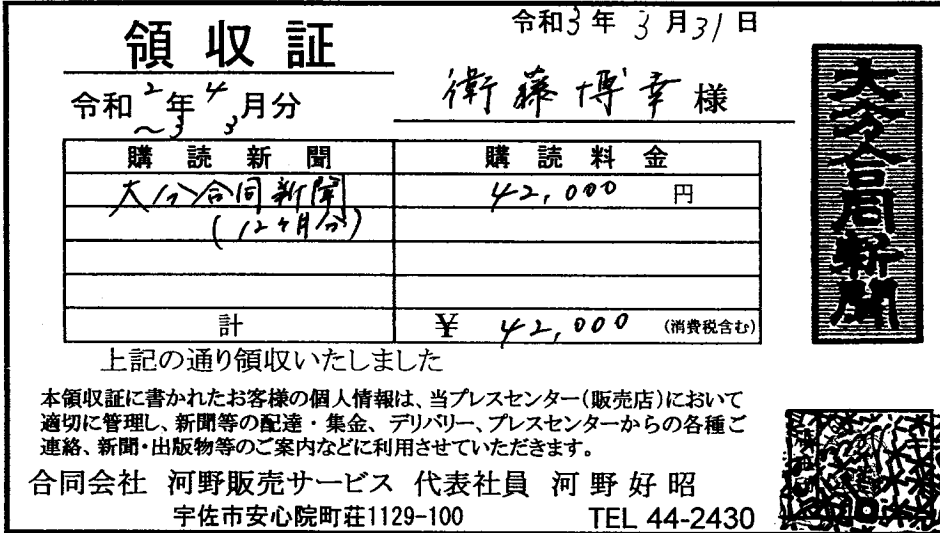 領収証
令和3年3月31日
令和2年4月分
～3 3
衛藤博幸様
購読新聞 購読料金
大分合同新聞 42,000 円
(12ヶ月分)
計 ¥ 42,000 (消費税含む)
上記の通り領収いたしました
本領収証に書かれたお客様の個人情報は、当プレスセンター(販売店)において
適切に管理し、新聞等の配達・集金、デリバリー、プレスセンターからの各種ご
連絡、新聞・出版物等のご案内などに利用させていただきます。
合同会社 河野販売サービス 代表社員 河野好昭
宇佐市安心院町荘1129-100 TEL 44-2430
大分合同新聞